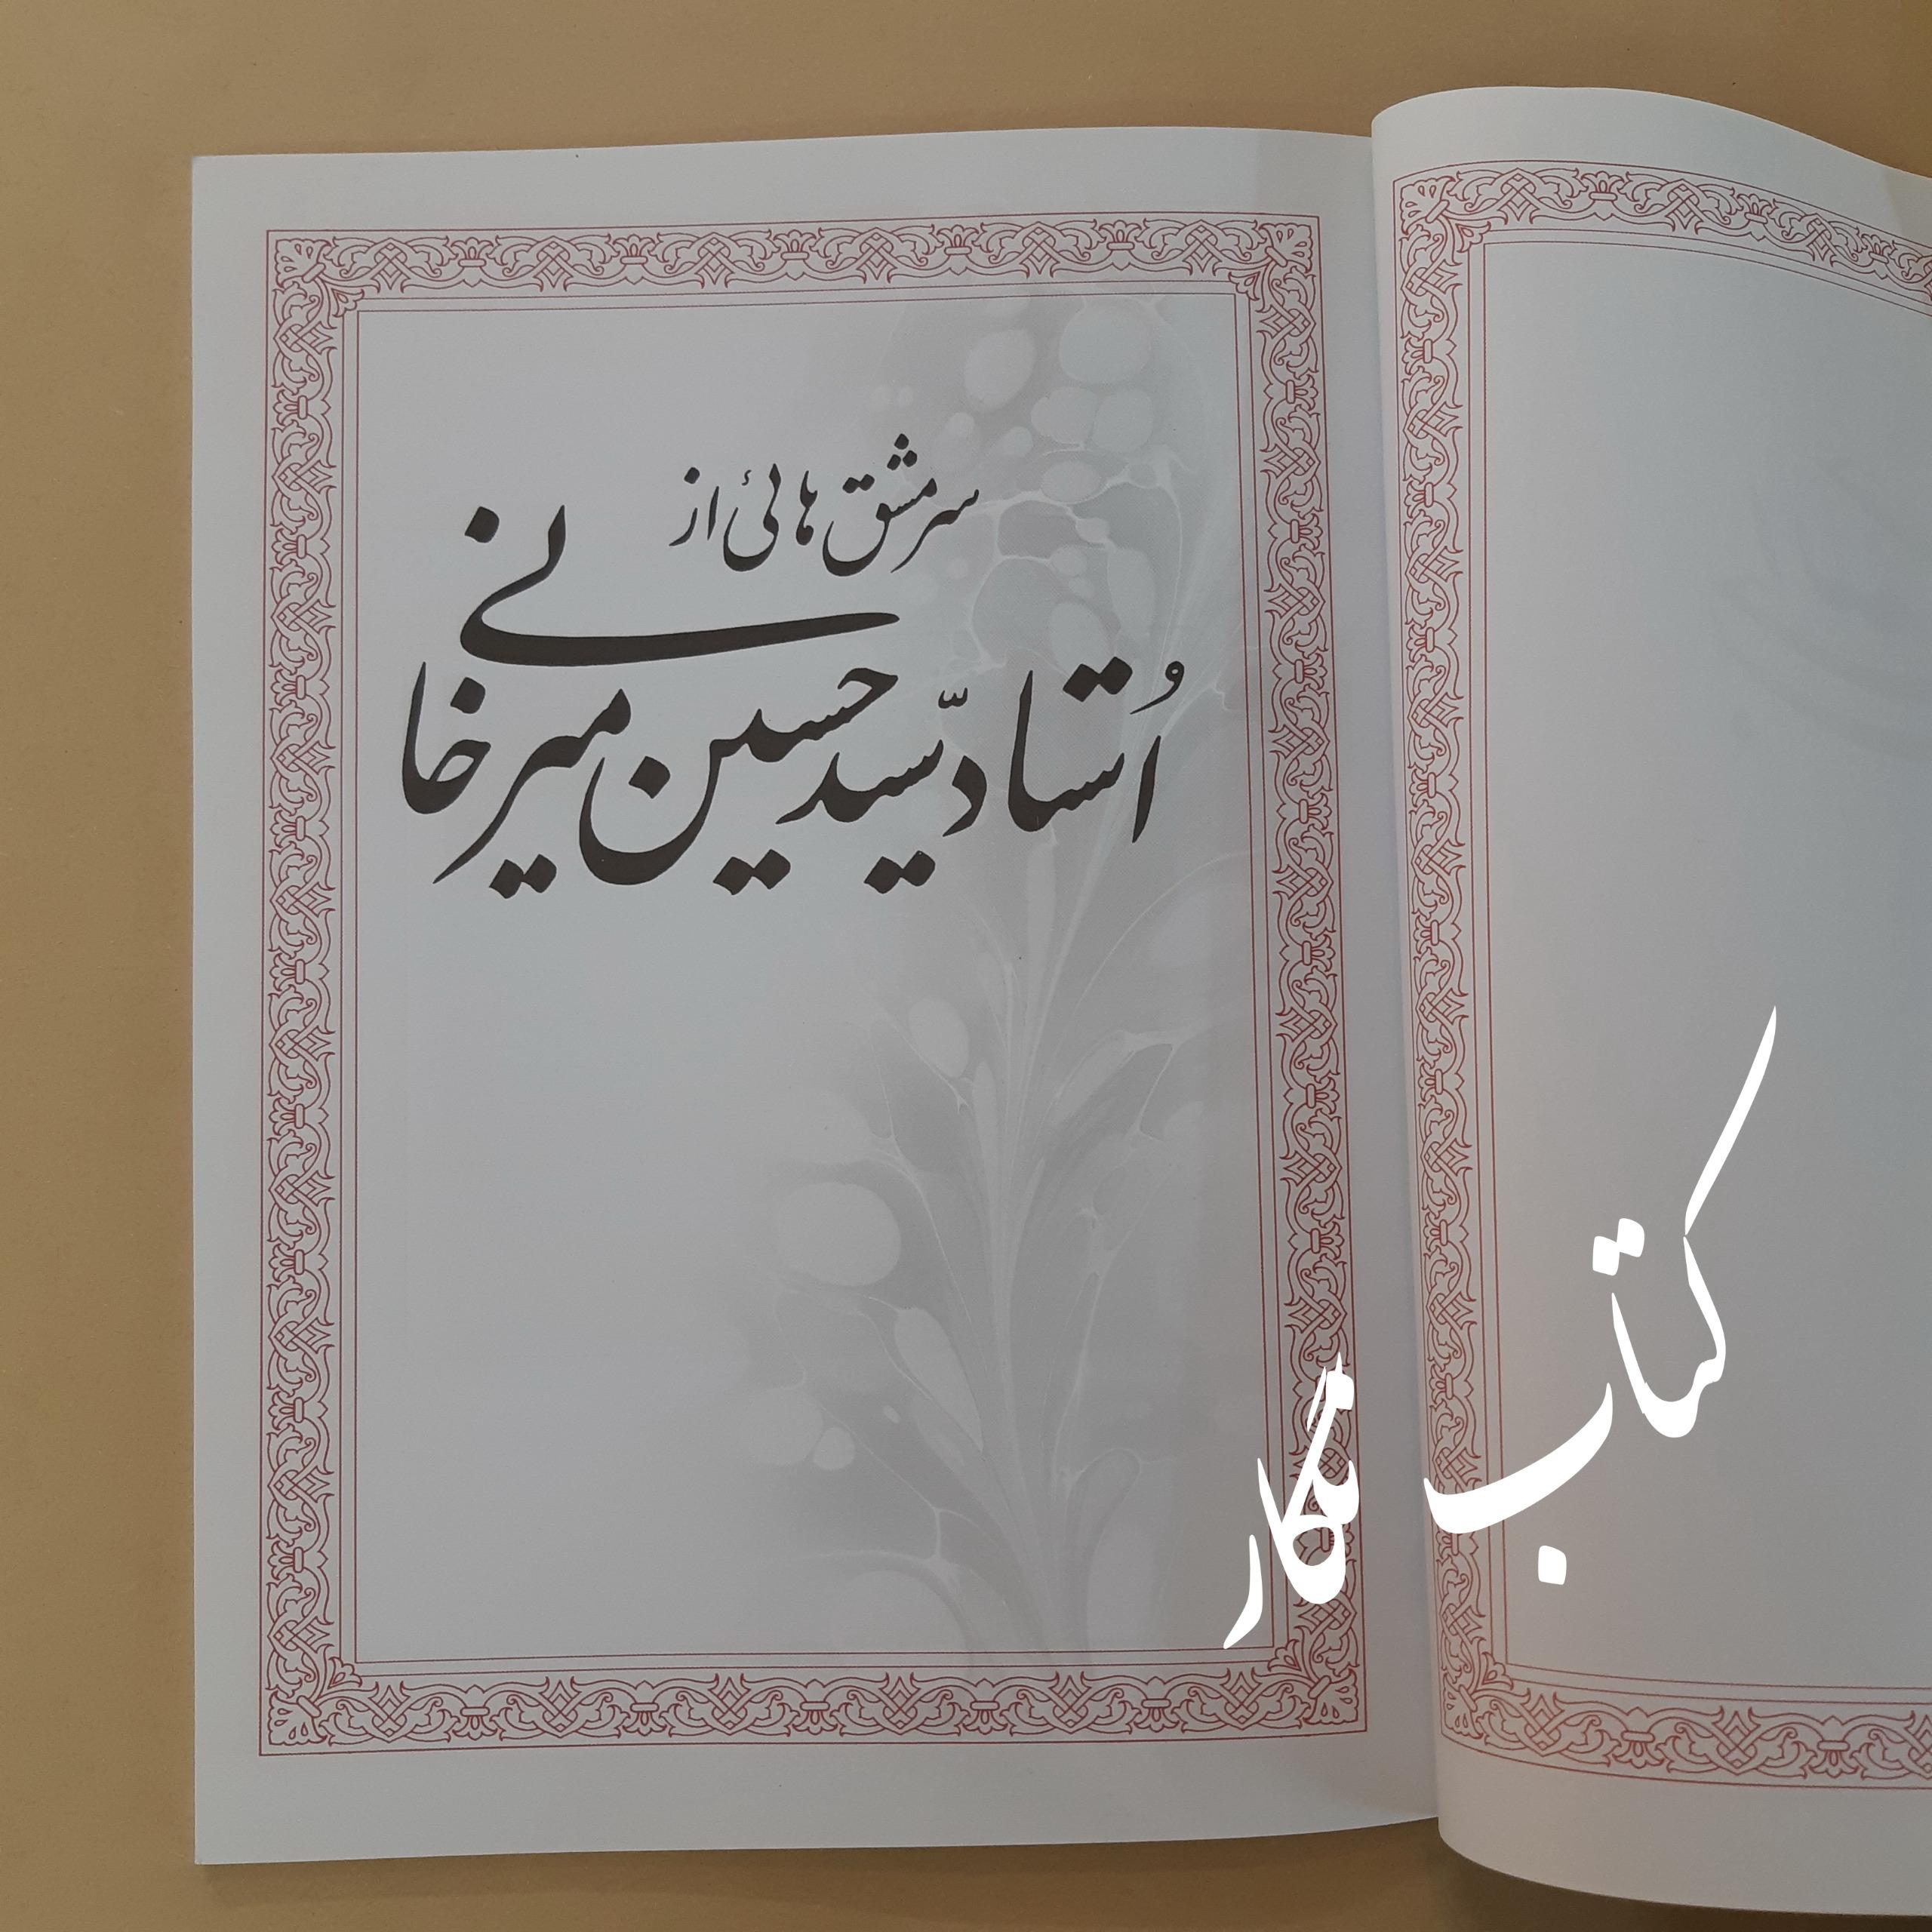 سرمشق هائی از
اُستاد سیّد حسین میرخانی
کتاب نگار